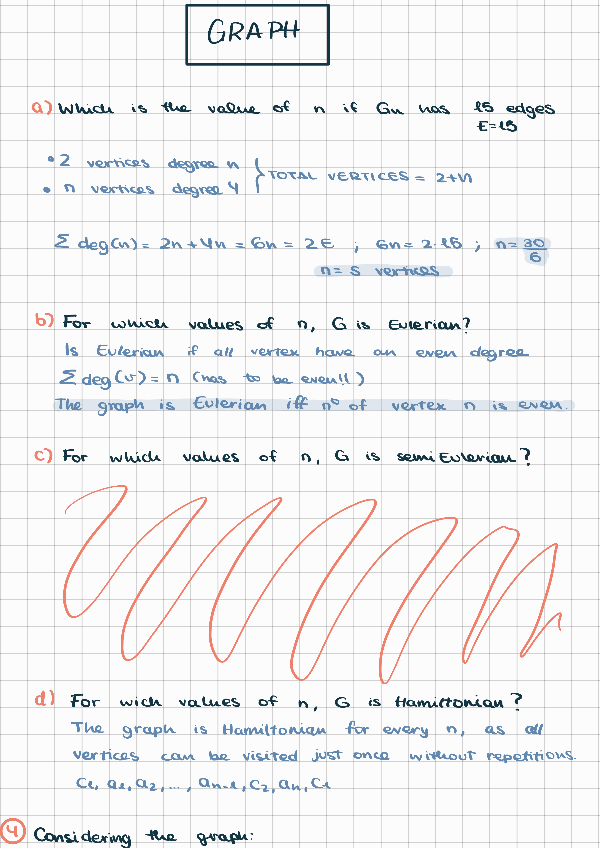 GRAPH
a) Which is the value of n if Gn has 15 edges
E=15
• 2 vertices degree n
TOTAL VERTICES = 2+n
• n vertices degree 4
Σ deg(n) = 2n+4n = 6n = 2E ; 6n = 2·15 ; n = 30/6
n = 5 vertices
b) For which values of n, G is Eulerian?
Is Eulerian if all vertex have an even degree
Σ deg(v) = n (has to be even!!)
The graph is Eulerian iff nº of vertex n is even.
c) For which values of n, G is semiEulerian?
d) For wich values of n, G is Hamiltonian?
The graph is Hamiltonian for every n, as all
vertices can be visited just once without repetitions.
C1, a1, a2, ..., an-1, C2, an, C1
4 Considering the graph: